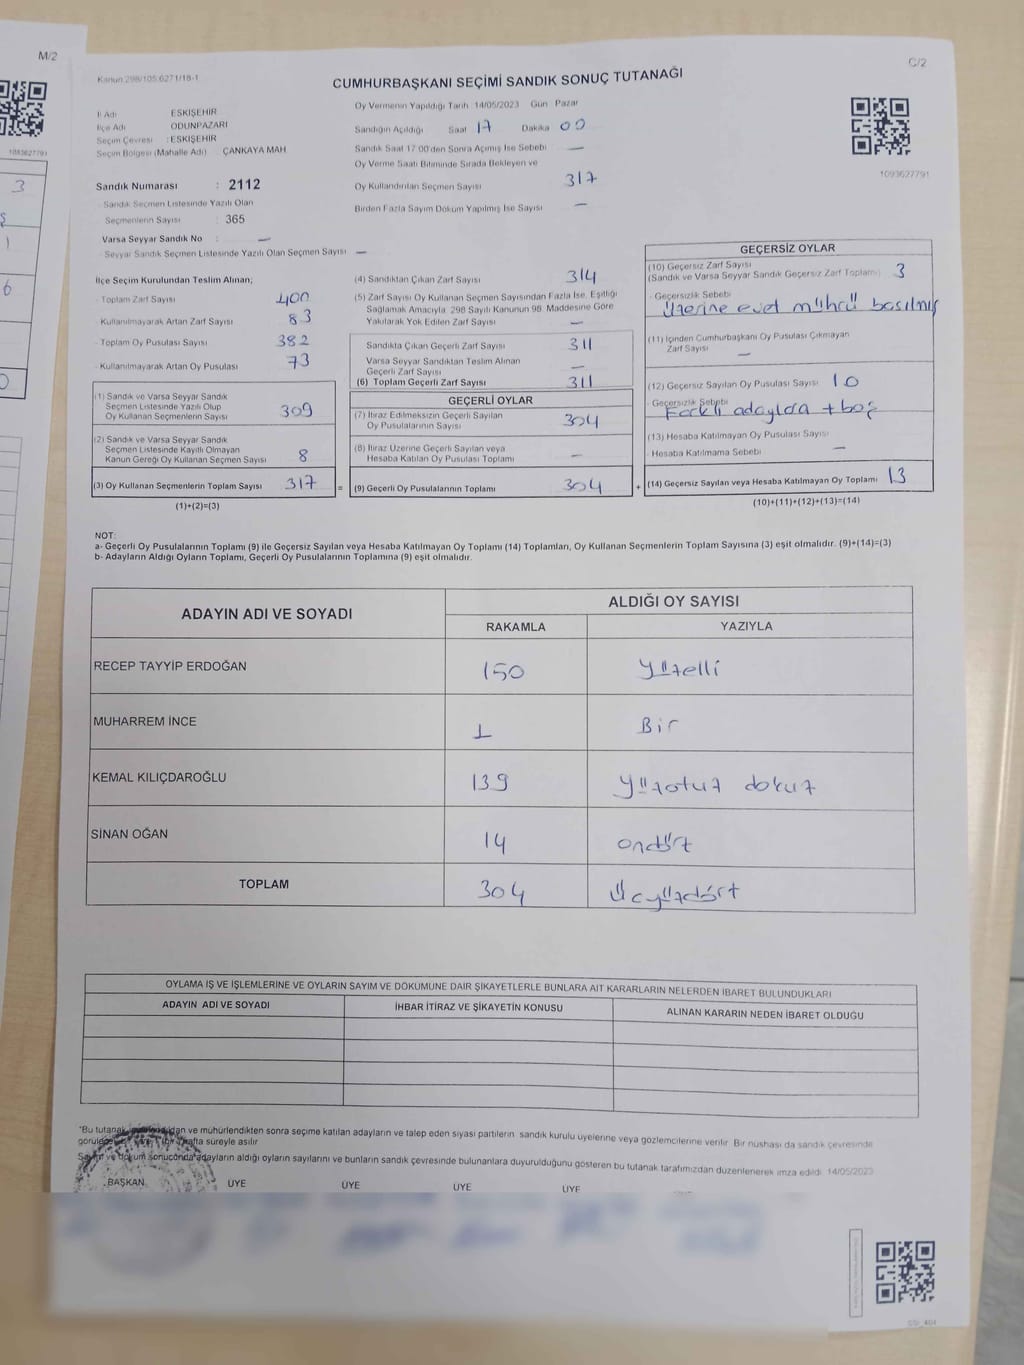 M/2
1093627791
3
Ş
1
6
0
C/2
Kanun:298/105;6271/18-1
CUMHURBAŞKANI SEÇİMİ SANDIK SONUÇ TUTANAĞI
İl Adı ESKİŞEHİR
İlçe Adı ODUNPAZARI
Seçim Çevresi : ESKİŞEHİR
Seçim Bölgesi (Mahalle Adı) ÇANKAYA MAH.
Sandık Numarası : 2112
Sandık Seçmen Listesinde Yazılı Olan
Seçmenlerin Sayısı : 365
Varsa Seyyar Sandık No : —
Seyyar Sandık Seçmen Listesinde Yazılı Olan Seçmen Sayısı —
Oy Vermenin Yapıldığı Tarih 14/05/2023 Gün Pazar
Sandığın Açıldığı Saat 17 Dakika 00
Sandık Saat 17:00'den Sonra Açılmış İse Sebebi —
Oy Verme Saati Bitiminde Sırada Bekleyen ve
Oy Kullandırılan Seçmen Sayısı 317
Birden Fazla Sayım Döküm Yapılmış İse Sayısı —
1093627791
İlçe Seçim Kurulundan Teslim Alınan;
Toplam Zarf Sayısı 400
Kullanılmayarak Artan Zarf Sayısı 83
Toplam Oy Pusulası Sayısı 382
Kullanılmayarak Artan Oy Pusulası 73
(1) Sandık ve Varsa Seyyar Sandık
Seçmen Listesinde Yazılı Olup
Oy Kullanan Seçmenlerin Sayısı 309
(2) Sandık ve Varsa Seyyar Sandık
Seçmen Listesinde Kayıtlı Olmayan
Kanun Gereği Oy Kullanan Seçmen Sayısı 8
(3) Oy Kullanan Seçmenlerin Toplam Sayısı 317 =
(1)+(2)=(3)
(4) Sandıktan Çıkan Zarf Sayısı 314
(5) Zarf Sayısı Oy Kullanan Seçmen Sayısından Fazla İse, Eşitliği
Sağlamak Amacıyla 298 Sayılı Kanunun 98. Maddesine Göre
Yakılarak Yok Edilen Zarf Sayısı —
Sandıkta Çıkan Geçerli Zarf Sayısı 311
Varsa Seyyar Sandıktan Teslim Alınan
Geçerli Zarf Sayısı —
(6) Toplam Geçerli Zarf Sayısı 311
GEÇERLİ OYLAR
(7) İtiraz Edilmeksizin Geçerli Sayılan
Oy Pusulalarının Sayısı 304
(8) İtiraz Üzerine Geçerli Sayılan veya
Hesaba Katılan Oy Pusulası Toplamı —
(9) Geçerli Oy Pusulalarının Toplamı 304 +
GEÇERSİZ OYLAR
(10) Geçersiz Zarf Sayısı
(Sandık ve Varsa Seyyar Sandık Geçersiz Zarf Toplamı) 3
Geçersizlik Sebebi
Üzerine evet mührü basılmış
(11) İçinden Cumhurbaşkanı Oy Pusulası Çıkmayan
Zarf Sayısı —
(12) Geçersiz Sayılan Oy Pusulası Sayısı 10
Geçersizlik Sebebi
Farklı adaylara + boş
(13) Hesaba Katılmayan Oy Pusulası Sayısı
Hesaba Katılmama Sebebi —
(14) Geçersiz Sayılan veya Hesaba Katılmayan Oy Toplamı 13
(10)+(11)+(12)+(13)=(14)
NOT:
a- Geçerli Oy Pusulalarının Toplamı (9) ile Geçersiz Sayılan veya Hesaba Katılmayan Oy Toplamı (14) Toplamları, Oy Kullanan Seçmenlerin Toplam Sayısına (3) eşit olmalıdır. (9)+(14)=(3)
b- Adayların Aldığı Oyların Toplamı, Geçerli Oy Pusulalarının Toplamına (9) eşit olmalıdır.
ADAYIN ADI VE SOYADI ALDIĞI OY SAYISI
RAKAMLA YAZIYLA
RECEP TAYYİP ERDOĞAN 150 Yüzelli
MUHARREM İNCE 1 Bir
KEMAL KILIÇDAROĞLU 139 Yüzotuz dokuz
SİNAN OĞAN 14 ondört
TOPLAM 304 Üçyüzdört
OYLAMA İŞ VE İŞLEMLERİNE VE OYLARIN SAYIM VE DÖKÜMÜNE DAİR ŞİKAYETLERLE BUNLARA AİT KARARLARIN NELERDEN İBARET BULUNDUKLARI
ADAYIN ADI VE SOYADI İHBAR İTİRAZ VE ŞİKAYETİN KONUSU ALINAN KARARIN NEDEN İBARET OLDUĞU
*Bu tutanak ve mühürlendikten sonra seçime katılan adayların ve talep eden siyasi partilerin sandık kurulu üyelerine veya gözlemcilerine verilir. Bir nüshası da sandık çevresinde
hafta süreyle asılır.
Sayım ve döküm sonucunda adayların aldığı oyların sayılarını ve bunların sandık çevresinde bulunanlara duyurulduğunu gösteren bu tutanak tarafımızdan düzenlenerek imza edildi. 14/05/2023
BAŞKAN ÜYE ÜYE ÜYE ÜYE